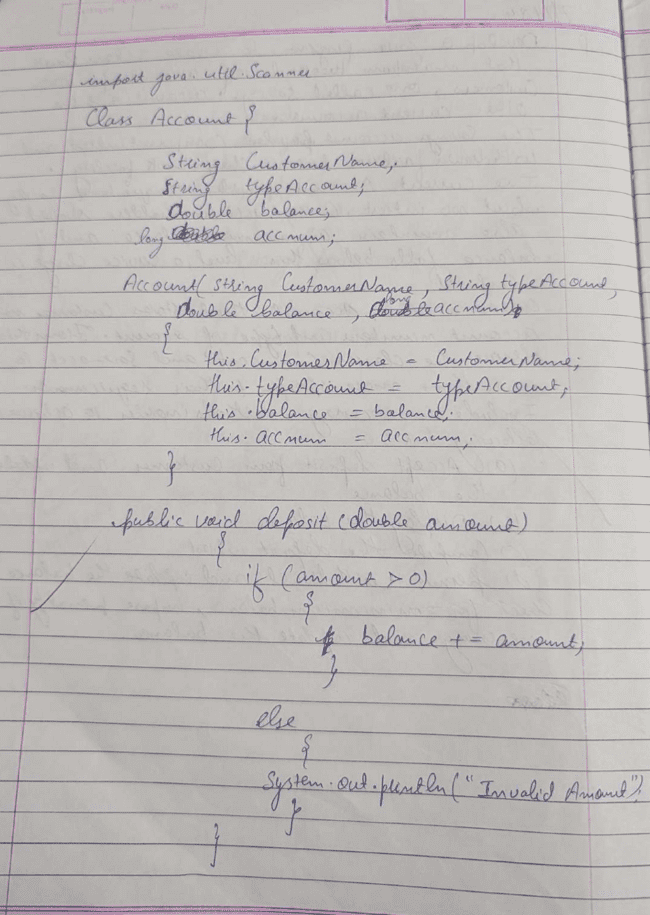 import java.util.Scanner
Class Account {
String CustomerName;
String typeAccount;
double balance;
long accnum;
Account( String CustomerName, String typeAccount,
double balance, long accnum)
{
this.CustomerName = CustomerName;
this.typeAccount = typeAccount;
this.balance = balance;
this.accnum = accnum;
}
public void deposit (double amount)
{
if (amount > 0)
{
balance += amount;
}
else
{
System.out.println("Invalid Amount");
}
}